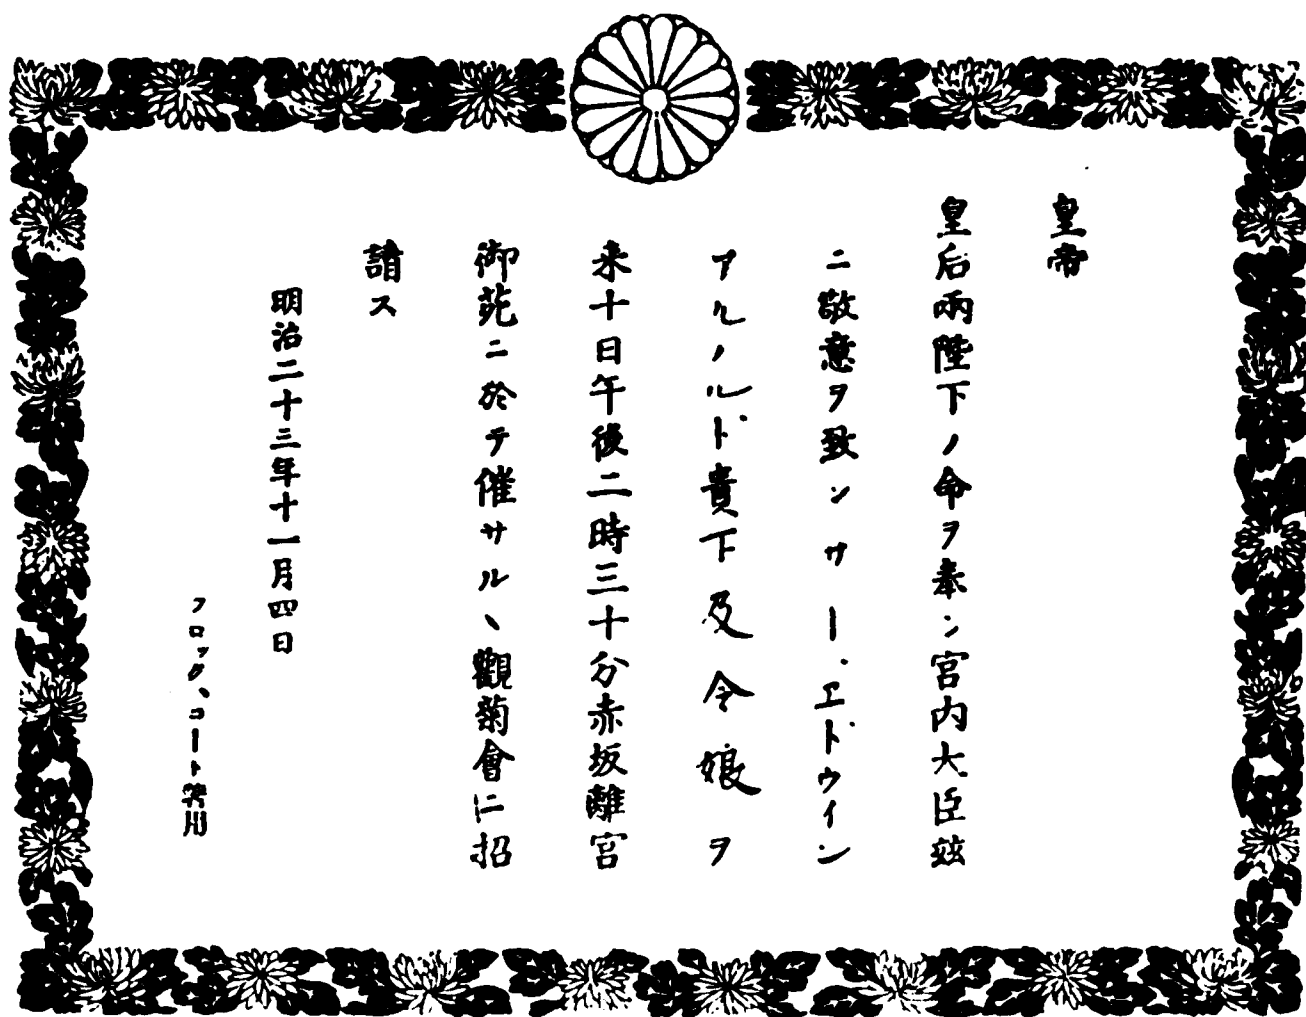 皇帝
皇后兩陛下ノ命ヲ奉シ宮内大臣玆
ニ敬意ヲ致シサー、エドウイン
アルノルド貴下及令娘ヲ
来十日午後二時三十分赤坂離宮
御苑ニ於テ催サルヽ觀菊會ニ招
請ス
明治二十三年十一月四日
フロック、コート着用